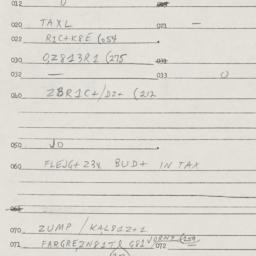 012 0
020 TAXL 021 —
022 R1C+K8E (054
030 0,2813R1 (275 031
032 — 033 0
040 28R1C+/D2+ (212
050 JO
060 FLEJG+23X BUD+ IN TAX
070 ZUMP / KAL81Z+1
071 072